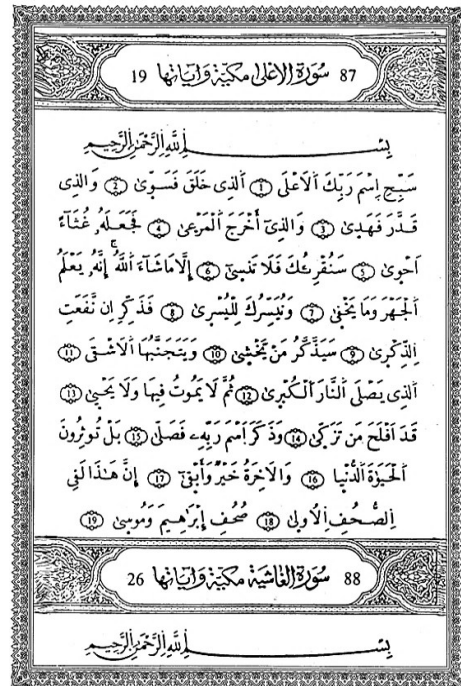 87 سُورَةُ الاَعْلىٰ مَكيَّة وَءَايَاتُهَا 19
بِسْمِ اِللَّهِ اِلرَّحْمَٰنِ اِلرَّحِيمِ
سَبِّحِ اِسْمَ رَبِّكَ اَلَاعْلَى ① اَلذِى خَلَقَ فَسَوّىٰ ② وَالذِى
قَدَّرَ فَهَدىٰ ③ وَالذِىٓ أَخْرَجَ اَلْمَرْعىٰ ④ فَجَعَلَهُۥ غُثَآءً
اَحْوىٰ ⑤ سَنُقْرِئُكَ فَلَا تَنسىٰٓ ⑥ إِلَّا مَا شَآءَ اَللَّهُ إِنَّهُۥ يَعْلَمُ
اُلْجَهْرَ وَمَا يَخْفىٰ ⑦ وَنُيَسِّرُكَ لِلْيُسْرىٰ ⑧ فَذَكِّرِ اِن نَّفَعَتِ
اِلذِّكْرىٰ ⑨ سَيَذَّكَّرُ مَنْ يَّخْشىٰ ⑩ وَيَتَجَنَّبُهَا اَلَاشْقَى ⑪
اَلذِى يَصْلَى اَلنَّارَ اَلْكُبْرىٰ ⑫ ثُمَّ لَا يَمُوتُ فِيهَا وَلَا يَحْيىٰ ⑬
قَدَ اَفْلَحَ مَن تَزَكّىٰ ⑭ وَذَكَرَ اَسْمَ رَبِّهِۦ فَصَلّىٰ ⑮ بَلْ تُوثِرُونَ
اَلْحَيَوٰةَ اَلدُّنْيا ⑯ وَالَاخِرَةُ خَيْرٌ وَأَبْقىٰٓ ⑰ إِنَّ هَٰذَا لَفِى
اِلصُّحُفِ اِلُاولىٰ ⑱ صُحُفِ إِبْرَاهِيمَ وَمُوسىٰ ⑲
88 سُورَةُ الْغَاشِيَة مَكيَّة وَءَايَاتُهَا 26
بِسْمِ اِللَّهِ اِلرَّحْمَٰنِ اِلرَّحِيمِ